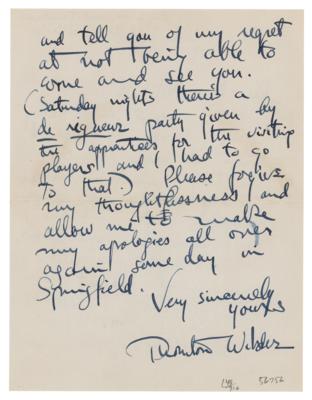 and tell you of my regret
at not being able to
come and see you.
(Saturday nights there's a
de rigueur party given by
the apprentices for the visiting
players and I had to go
to that.) Please forgive
my thoughtlessness and
allow me to make
my apologies all over
again some day in
Springfield.
Very sincerely
yours
Thornton Wilder
56756